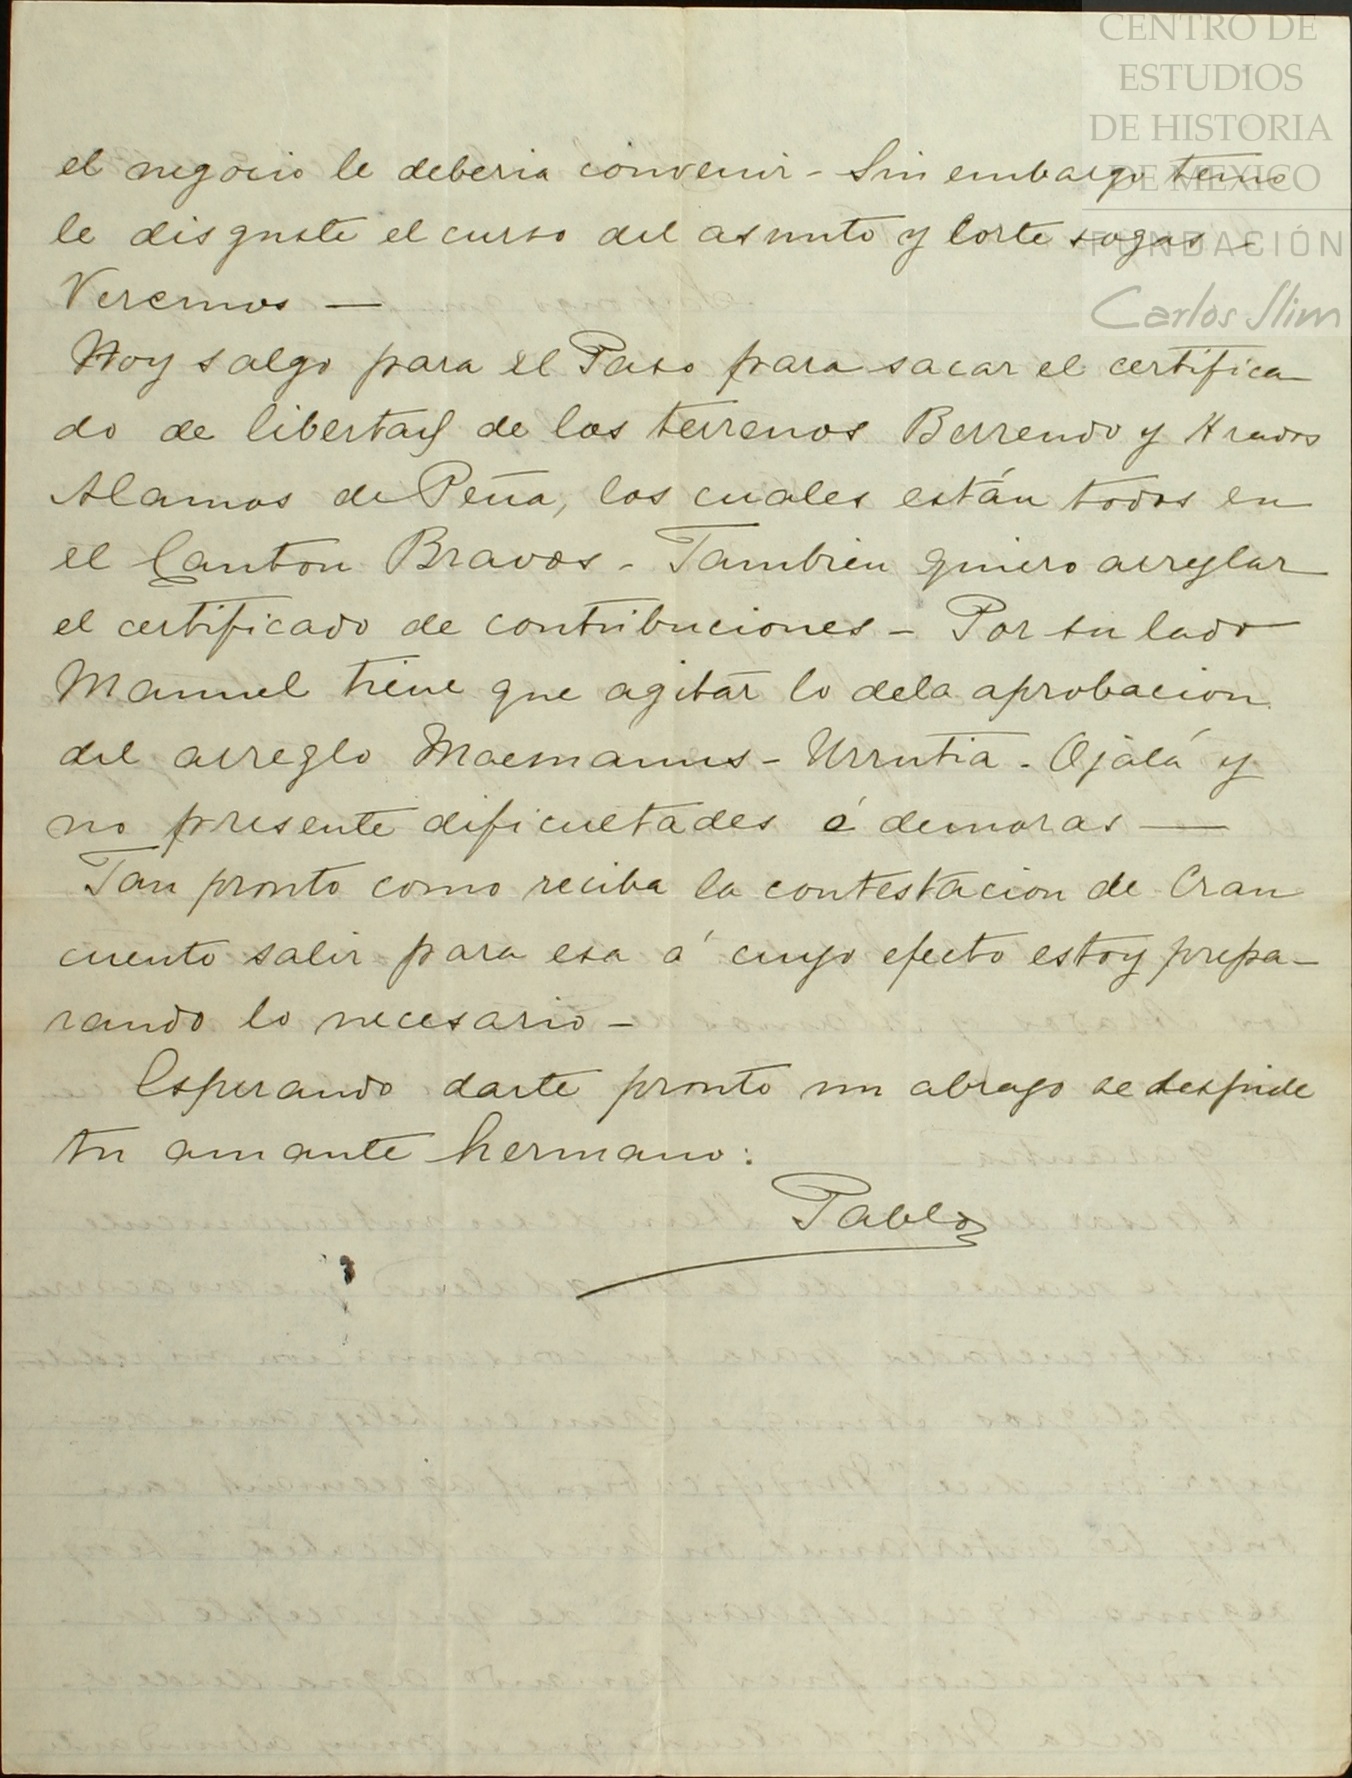 CENTRO DE
ESTUDIOS
DE HISTORIA
DE MÉXICO
FUNDACIÓN
Carlos Slim
el negocio le deberia convenir - Sin embargo temo
le disguste el curso del asunto y corte sogas -
Veremos —
Hoy salgo para el Paso para sacar el certifica-
do de libertad de los terrenos Berrendo y
Alamos de Peña, los cuales están todos en
el Canton Bravos - Tambien quiero arreglar
el certificado de contribuciones - Por su lado
Manuel tiene que agitar lo dela aprobacion
del arreglo Macmanus - Urrutia. Ojalá y
no presente dificultades ó demoras —
Tan pronto como reciba la contestacion de Cran
cuento salir para esa á cuyo efecto estoy prepa-
rando lo necesario -
Esperando darte pronto un abrazo se despide
tu amante hermano:
Pablo